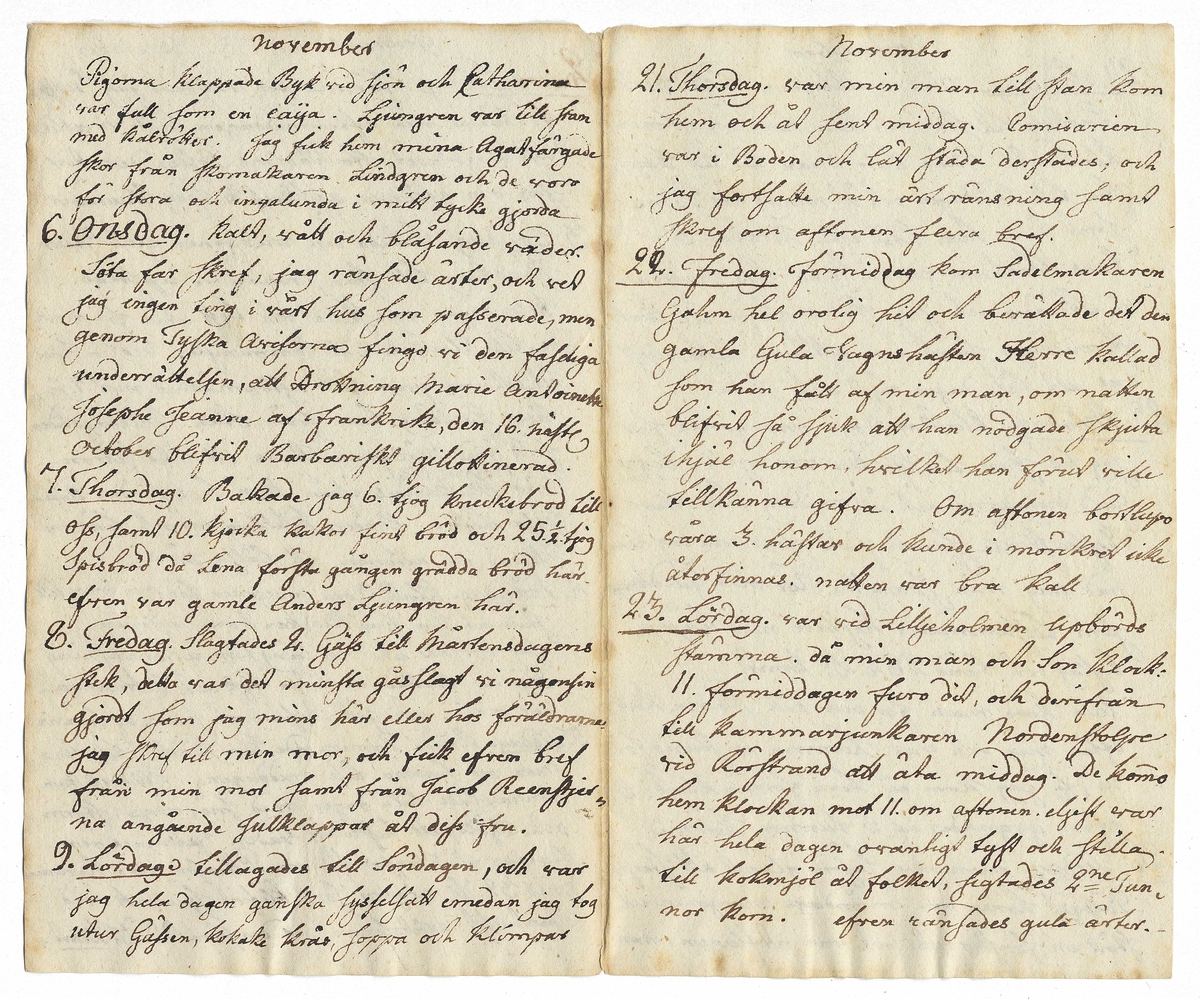 November
Pigorna klappade Byk vid sjön och Catharina
var full som en Caija. Ljungren var till stan
med kålrötter. jag fick hem mina Agatfärgade
skor från skomakaren Lindgren och de voro
för stora och ingalunda i mitt tycke gjorda
6. Onsdag. kalt, vått och blåsande väder.
Söta far skref, jag ränsade ärter, och vet
jag ingen ting i vårt hus som passerade, men
genom Tyska Avisorna fingo vi den fasliga
underrättelsen, att Drottning Marie Antoinette
Josephe Jeanne af Frankrike, den 16. nästl.
October blifvit Barbariskt gillottinerad.
7. Thorsdag. Bakade jag 6. tjog kneckebröd till
oss, samt 10. tjocka kakor fint bröd och 25½ tjog
spisbröd då Lena första gången grädda bröd här.
efven var gamle Anders Ljungren här.
8. Fredag. Slagtades 2. Gäss till Mårtensdagens
stek, detta var det minsta gåsslagt vi någonsin
gjordt som jag mins här eller hos föräldrarne.
jag skref till min mor, och fick efven bref
från min mor samt från Jacob Reenstjer=
na angående Julklappar åt dess fru.
9. Lördag tillagades till Söndagen, och var
jag hela dagen ganska sysselsatt emedan jag tog
utur Gässen, kokake krås, soppa och klimpar
November
21. Thorsdag. var min man till stan kom
hem och åt sent middag. Comisarien
var i Boden och lät städa derstädes, och
jag fortsatte min ärt ränsning samt
skref om aftonen flera bref.
22. Fredag. förmiddag kom Sadelmakaren
Gahm hel orolig hit och berättade det den
gamla Gula Vagnshästen Herre kallad
som han fått af min man, om natten
blifvit så sjuk att han nödgade skjuta
ihjäl honom, hvilket han förut ville
tillkänna gifva. Om aftonen bortlupo
våra 3. hästar och kunde i mörikret icke
återfinnas. natten var bra kall
23. Lördag. var vid Liljeholmen Upbörds
stämma. då min man och Son klock:
11. förmiddagen furo dit, och derifrån
till kammarjunkaren Nordenstolpe
vid Rörstrand att äta middag. De komo
hem klockan mot 11. om aftonen. eljest var
här hela dagen ovanligt tyst och stilla.
till kokmjöl åt folket, sigtades 2ne Tun=
nor korn. efven ränsades gula ärter.